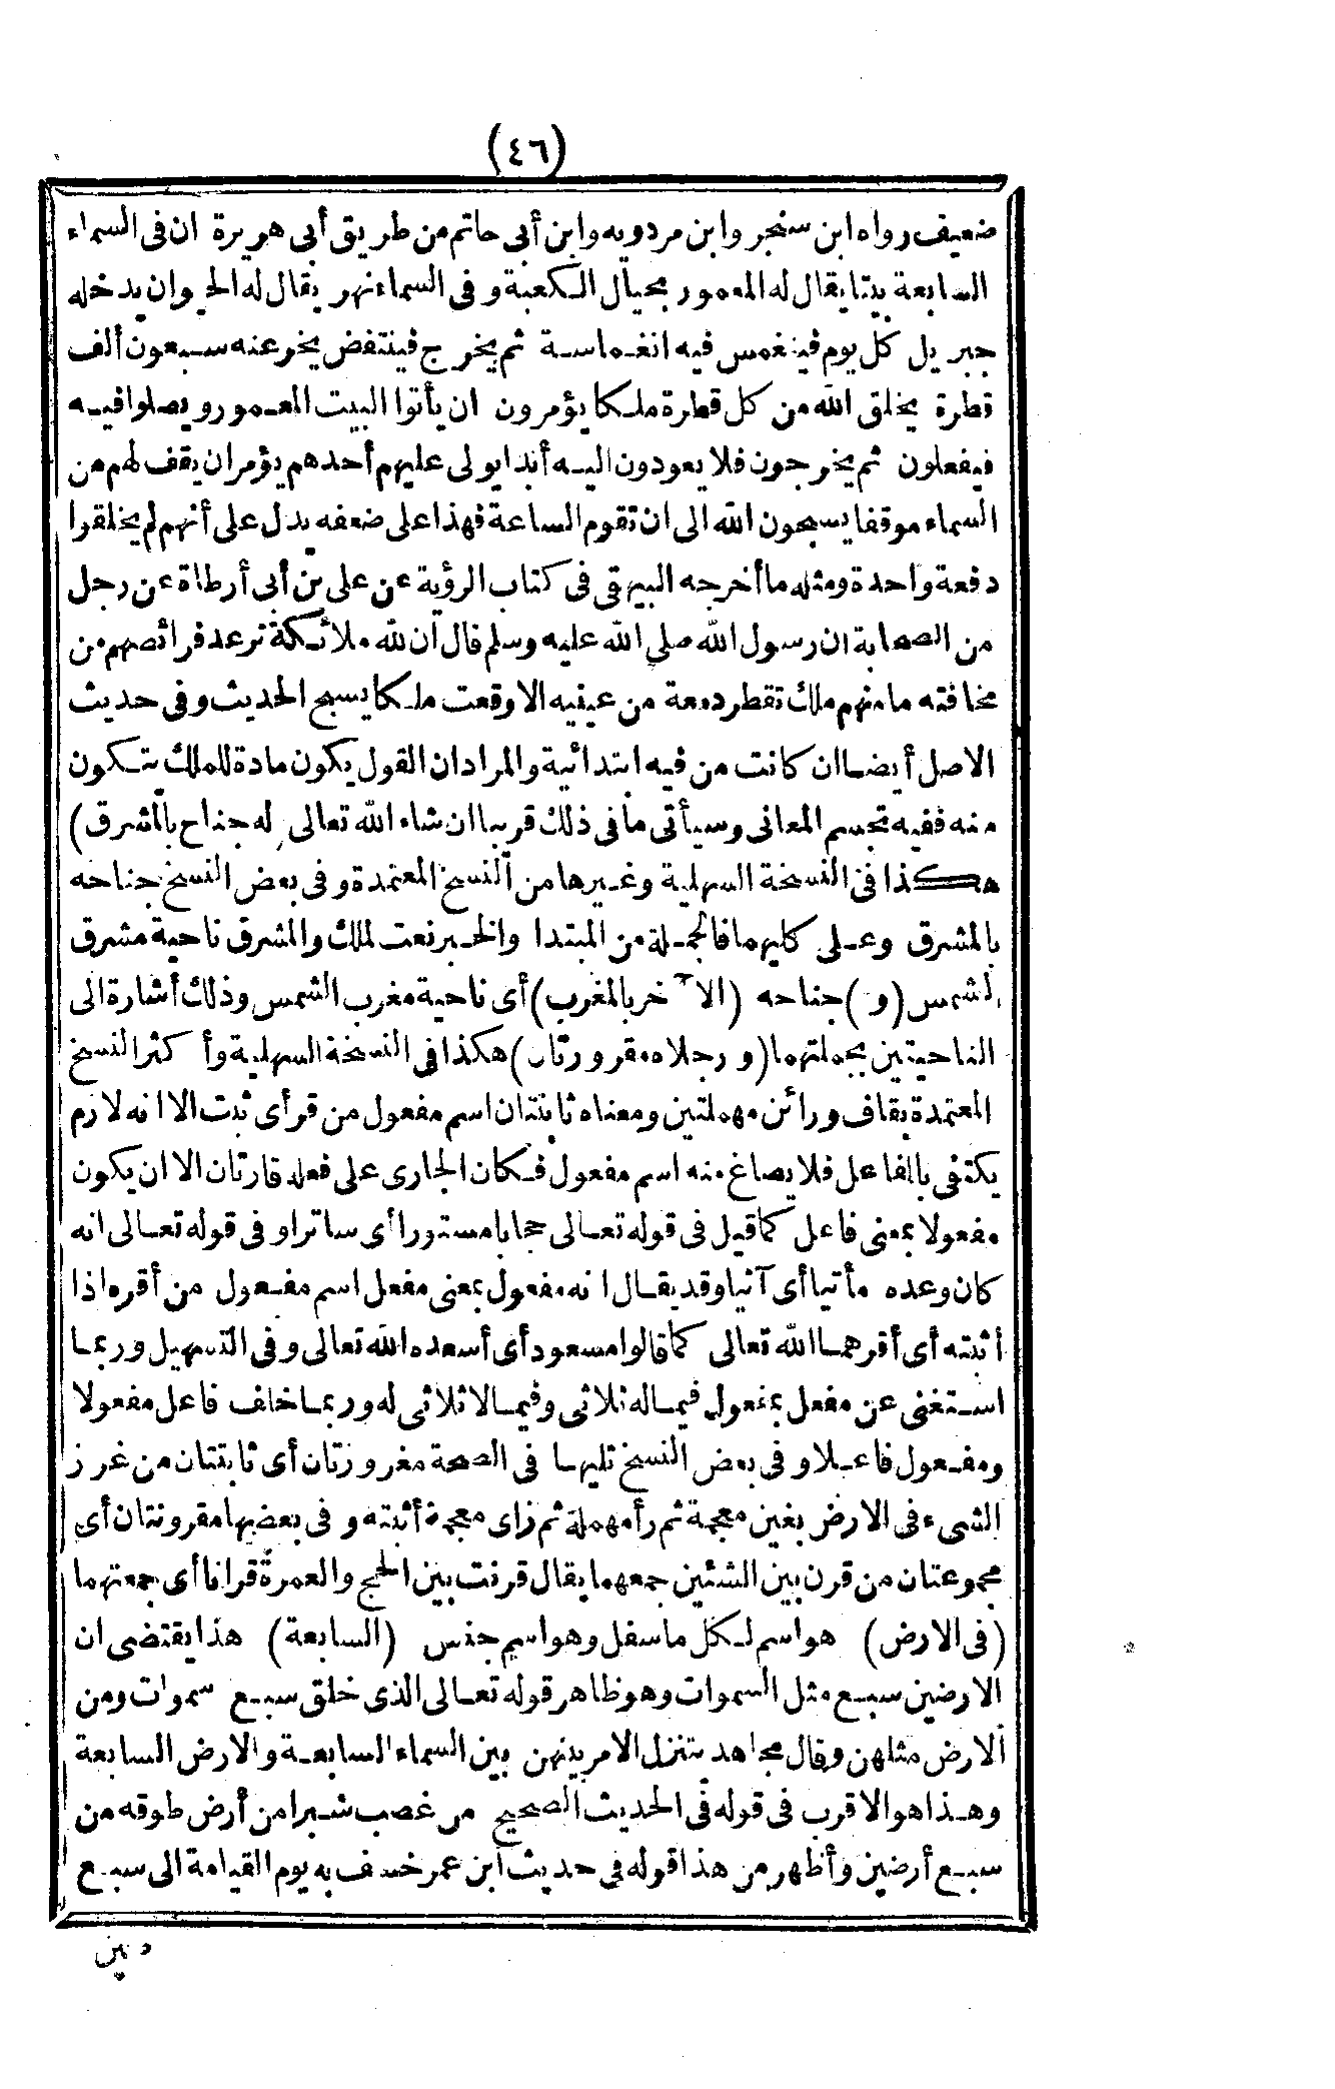 (٤٦)
ضعيف رواه ابن سنجر وابن مردويه وابن أبى حاتم من طريق أبى هريرة ان فى السماء
السابعة بيتا يقال له المعمور بحيال الكعبة وفى السماء نهر يقال له الحيوان يدخله
جبريل كل يوم فينغمس فيه انغماسة ثم يخرج فينتفض يخر عنه سبعون ألف
قطرة يخلق الله من كل قطرة ملكا يؤمرون ان يأتوا البيت المعمور ويصلوا فيه
فيفعلون ثم يخرجون فلا يعودون اليه أبدا يولى عليهم أحدهم يؤمر ان يقف لهم من
السماء موقفا يسبحون الله الى ان تقوم الساعة فهذا على ضعفه يدل على أنهم لم يخلقوا
دفعة واحدة ومثله ما أخرجه البيهقى فى كتاب الرؤية عن على بن أبى أرطاة عن رجل
من الصحابة ان رسول الله صلى الله عليه وسلم قال ان لله ملائكة ترعد فرائصهم من
مخافته ما منهم ملك تقطر دمعة من عينيه الا وقعت ملكا يسبح الحديث وفى حديث
الاصل أيضا ان كانت من فيه ابتدائية والمراد ان القول يكون مادة للملك يتكون
منه ففيه تجسم المعانى وسيأتى ما فى ذلك قريبا ان شاء الله تعالى (له جناح بالمشرق)
هكذا فى النسخة السهلية وغيرها من النسخ المعتمدة وفى بعض النسخ جناحه
بالمشرق وعلى كليهما فالجملة من المبتدا والخبر نعت لملك والمشرق ناحية مشرق
الشمس (و) جناحه (الآخر بالمغرب) أى ناحية مغرب الشمس وذلك أشارة الى
الناحيتين بجملتهما (ورجلاه مقرورتان) هكذا فى النسخة السهلية وأكثر النسخ
المعتمدة بقاف ورائن مهملتين ومعناه ثابتتان اسم مفعول من قر أى ثبت الا انه لازم
يكتفى بالفاعل فلا يصاغ منه اسم مفعول فكان الجارى على فعله قارتان الا ان يكون
مفعولا بمعنى فاعل كما قيل فى قوله تعالى حجابا مستورا أى ساترا وفى قوله تعالى انه
كان وعده مأتيا أى آتيا وقد يقال انه مفعول بمعنى مفعل اسم مفعول من أقره اذا
أثبته أى أقرهما الله تعالى كما قالوا مسعود أى أسعده الله تعالى وفى التسهيل وربما
استغنى عن مفعل بمفعول فيما له ثلاثى وفيما لا ثلاثى له وربما خلف فاعل مفعولا
ومفعول فاعلا وفى بعض النسخ تليها فى الصحة مغروزتان أى ثابتتان من غرز
الشىء فى الارض بغين معجمة ثم رأ مهملة ثم زاى معجمة أثبته وفى بعضها مقرونتان أى
مجموعتان من قرن بين الشئين جمعهما يقال قرنت بين الحج والعمرة قرانا أى جمعتهما
(فى الارض) هو اسم لكل ما سفل وهو اسم جنس (السابعة) هذا يقتضى ان
الارضين سبع مثل السموات وهو ظاهر قوله تعالى الذى خلق سبع سموات ومن
الارض مثلهن وقال مجاهد يتنزل الامر بينهن بين السماء السابعة والارض السابعة
وهذا هو الاقرب فى قوله فى الحديث الصحيح من غصب شبرا من أرض طوقه من
سبع أرضين وأظهر من هذا قوله فى حديث ابن عمر خسف به يوم القيامة الى سبع